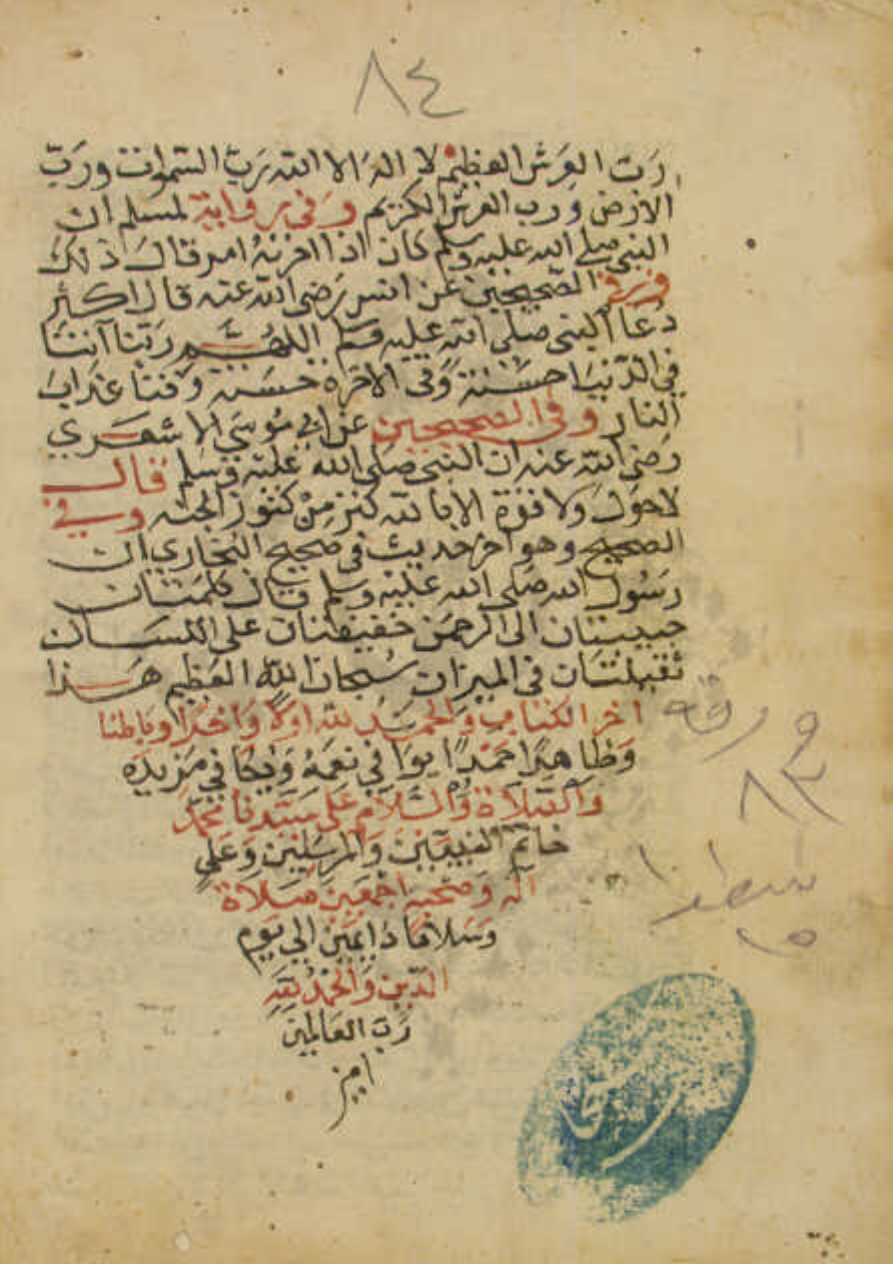 ٨٤
رَبّ العَرش العظيم لا اله الا الله رَبّ السّموات وَرَبّ
الارض وَرب العرش الكريم وَفي رواية لمسلم ان
النبي صلى الله عليه وسلم كان اذا احزنهُ امر قال ذلك
الصحيحين عن انس رَضى الله عنه قال اكثر
دعا النبى صلى الله عليه وسلم اللهُمّ رَبّنا آتنا
فى الدّنيا حسَنة وَفى الاخرة حسَنة وَقنا عذاب
النار وفى الصحيحين عن ابي مُوسَي الاشعَري
رَضى الله عنه ان النبي صَلى اللهُ عَليه وَسَلم قال
لا حَول وَلا قوة الا بالله كنز مِنْ كنوز الجنه وفي
الصحيح وهو اخر حديث في صحيح البُخاري ان
رَسُول الله صَلى الله عليه وسلم قال كلمتان
حبيبتان الى الرحمن خفيفتان على اللسَان
ثقيلتان فى الميزان سُبحان اللهِ العَظيم هَذا
اخر الكتاب وَالحمدُ لله اولا وَاخرا وباطنا
وَظاهرًا حمدًا يوَافي نعمَهُ وَيكافي مَزيده
وَالصّلاة وَالسّلام عَلى سَيّدنا محمّد
خاتم النبيّين وَالمرسَلين وَعَلي
اله وَصحبه اجمعين صَلاة
وَسَلامًا دَايمَين الي يَوم
الدّين وَالحمْدُ لله
رَبّ العَالمين
امين
ورقه
٨٣
سطر
١٥